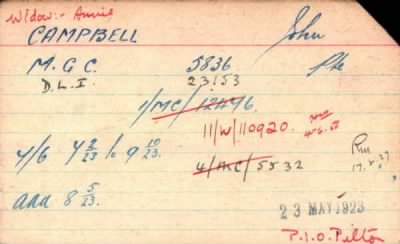 Widow:- Annie
CAMPBELL John
M.G.C. 5836 Pte
D.L.I. 23153
1/MC/12A96.
11/W/110920.
4/6 4 2/23 to 9 10/23.
4/MC/5532
add 8 5/23.
23 MAY 1923
P.I.O. Pilton